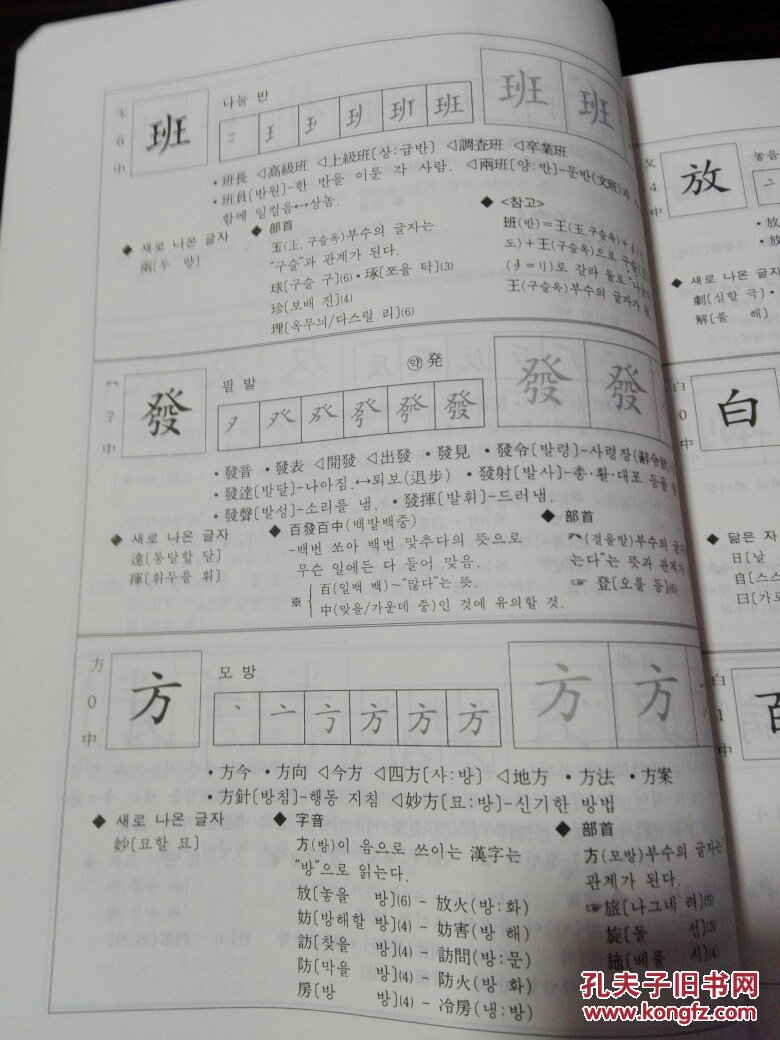 玉
6
中
班
나눌 반
班 班
• 班長 ◁高級班 ◁上級班[상:급반] ◁調査班 ◁卒業班
• 班員[반원]-한 반을 이룬 각 사람. ◁兩班[양:반]-문반(文班)과
함께 일컬음↔상놈.
◆ 새로 나온 글자
兩[두 량]
◆ 部首
玉(王, 구슬옥)부수의 글자는
"구슬"과 관계가 된다.
球[구슬 구](6) • 琢[쪼을 탁](3)
珍[보배 진](4)
理[옥무늬/다스릴 리](6)
◆ <참고>
班(반)=王(玉, 구슬옥)+
도)+王(구슬옥)으로 구슬
로 갈라 둘로 나눈
王(구슬옥)부수의 글자가
癶
7
中
發
필 발
약 発
發 發
• 發音 • 發表 ◁開發 ◁出發 • 發見 • 發令[발령]-사령장(辭令狀)
• 發達[발달]-나아짐.↔퇴보(退步) • 發射[발사]-총·활·대포 등을
• 發聲[발성]-소리를 냄. • 發揮[발휘]-드러냄.
◆ 새로 나온 글자
達[통달할 달]
揮[휘두를 휘]
◆ 百發百中(백발백중)
-백번 쏘아 백번 맞추다의 뜻으로
무슨 일에든 다 들어 맞음.
※ 百(일백 백)~"많다"는 뜻.
中(맞을/가운데 중)인 것에 유의할 것.
◆ 部首
癶(걸을발)부수의 글자
는다"는 뜻과 관계가
☞ 登[오를 등](6)
方
0
中
方
모 방
丶 亠 方 方 方 方
方 方
• 方今 • 方向 ◁今方 ◁四方[사:방] ◁地方 • 方法 • 方案
• 方針[방침]-행동 지침 ◁妙方[묘:방]-신기한 방법
◆ 새로 나온 글자
妙[묘할 묘]
◆ 字音
方(방)이 음으로 쓰이는 漢字는
"방"으로 읽는다.
放[놓을 방](6) - 放火(방:화)
妨[방해할 방](4) - 妨害(방 해)
訪[찾을 방](4) - 訪問(방:문)
防[막을 방](4) - 防火(방 화)
房[방 방](4) - 冷房(냉:방)
◆ 部首
方(모방)부수의 글자는
관계가 된다.
☞旅[나그네 려](5)
旋[돌 선](3)
施[베풀 시](4)
攵
4
中
放
놓을
◆ 새로 나온 글자
劇[심할 극] •
解[풀 해]
白
0
中
白
◆ 닮은 자
日[날
自[스스
曰[가로
白
1
中
孔夫子旧书网
www.kongfz.com